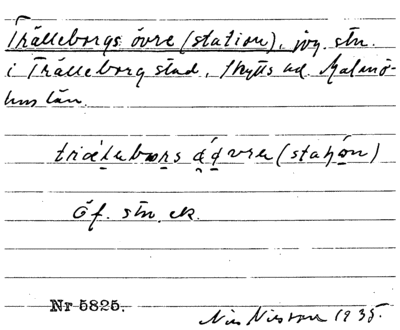 Trälleborgs övre (station), jvg. stn.
i Trälleborg stad, Skytts hd. Malmö-
hus län.
övre (station)
Öf. stn. ek.
Nr 5825.
Nils Nilsson 1935.